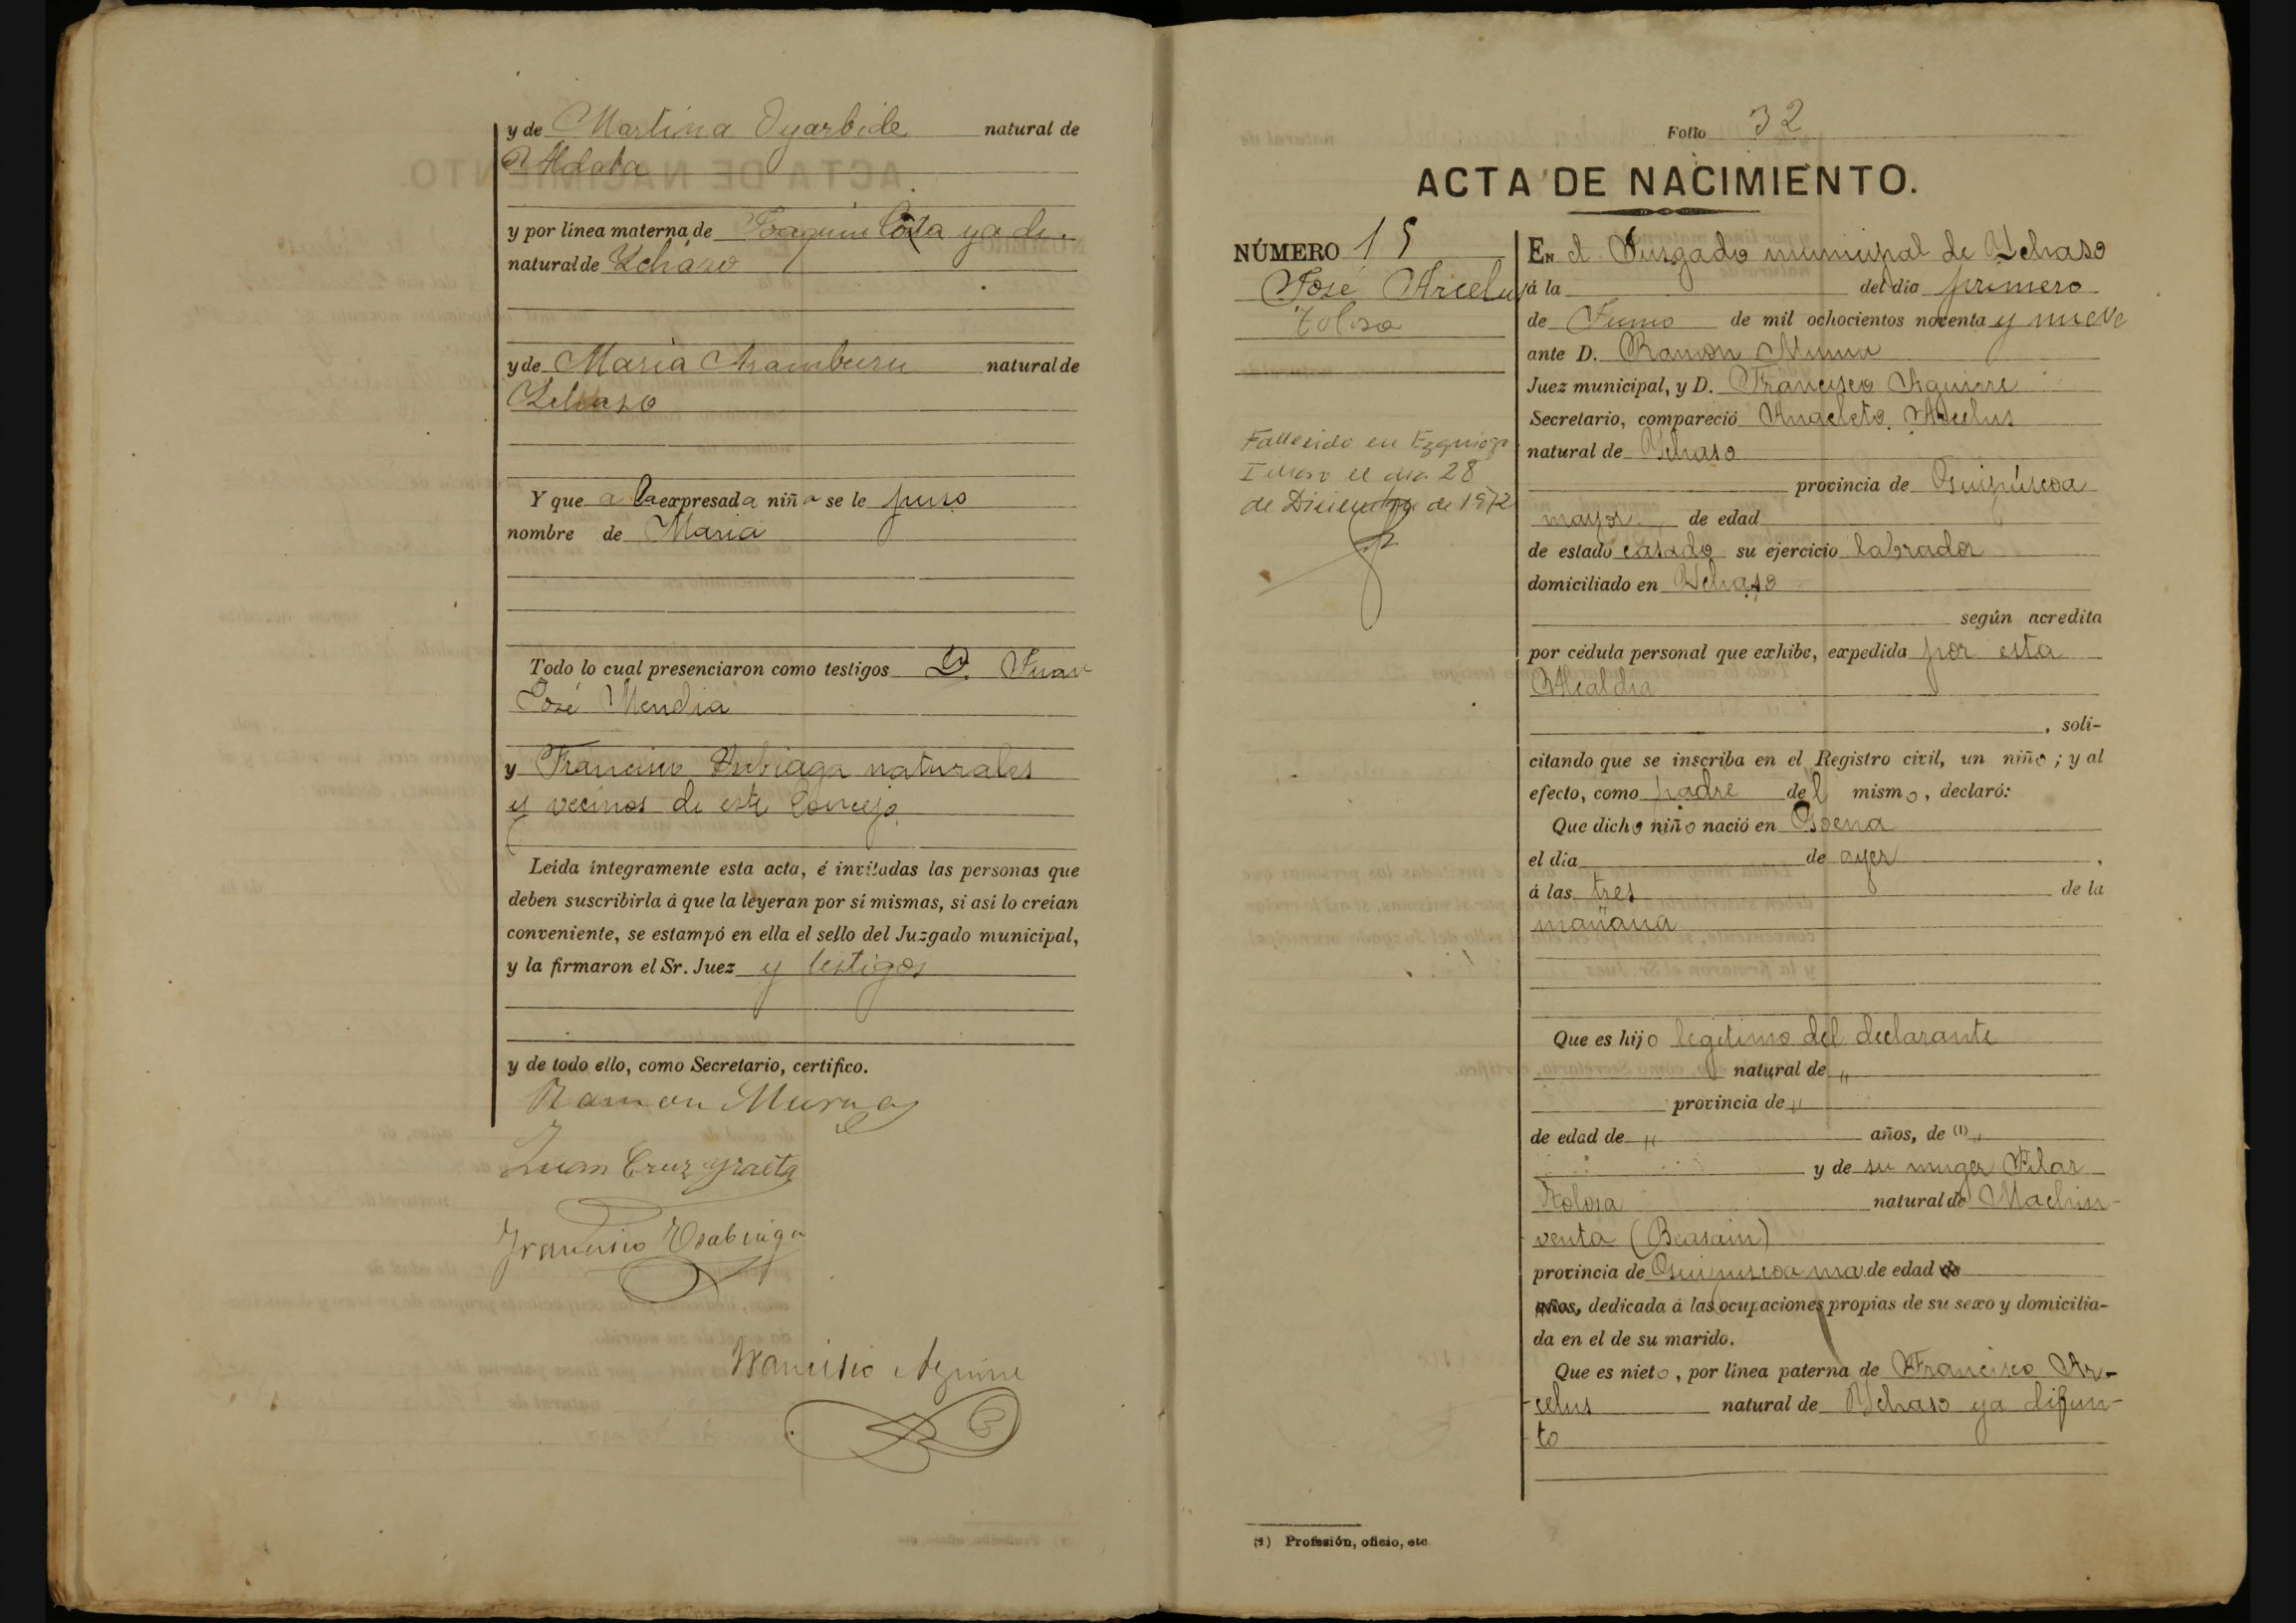 y de Martina Oyarbide natural de
Aldaba
y por línea materna de Joaquin ya di.
natural de Ychaso
y de Maria Aramburu natural de
Ychaso
Y que a la expresada niña se le puso
nombre de Maria
Todo lo cual presenciaron como testigos D. Juan
José Mendia
y Francisco naturales
y vecinos de este Concejo
Leída íntegramente esta acta, é invitadas las personas que
deben suscribirla á que la leyeran por sí mismas, si así lo creían
conveniente, se estampó en ella el sello del Juzgado municipal,
y la firmaron el Sr. Juez y testigos
y de todo ello, como Secretario, certifico.
Ramon Murua
Juan Cruz
Francisco
Francisco Aguirre
Folio 32
ACTA DE NACIMIENTO.
NÚMERO 15
José Arcelus
Tolosa
Fallecido en Ezquioga
Ichaso el dia 28
de Diciembre de 1972
En el Jusgado municipal de Ychaso
á la del día primero
de Junio de mil ochocientos noventa y nueve
ante D. Ramon Murua
Juez municipal, y D. Francisco Aguirre
Secretario, compareció Anacleto Arcelus
natural de Ychaso
provincia de Guipúscoa
mayor de edad
de estado casado su ejercicio labrador
domiciliado en Ychaso
según acredita
por cédula personal que exhibe, expedida por esta
Alcaldia
, soli-
citando que se inscriba en el Registro civil, un niño; y al
efecto, como padre del mismo, declaró:
Que dicho niño nació en Goena
el día de ayer ,
á las tres de la
mañana
Que es hijo legitimo del declarante
natural de "
provincia de "
de edad de " años, de (1) "
y de su muger Pilar
Tolosa natural de Machin-
venta (Beasain)
provincia de Guipuscoa ma. de edad de
años, dedicada á las ocupaciones propias de su sexo y domicilia-
da en el de su marido.
Que es nieto, por línea paterna de Francisco Ar-
celus natural de Ychaso ya difun-
to
(1) Profesión, oficio, etc.